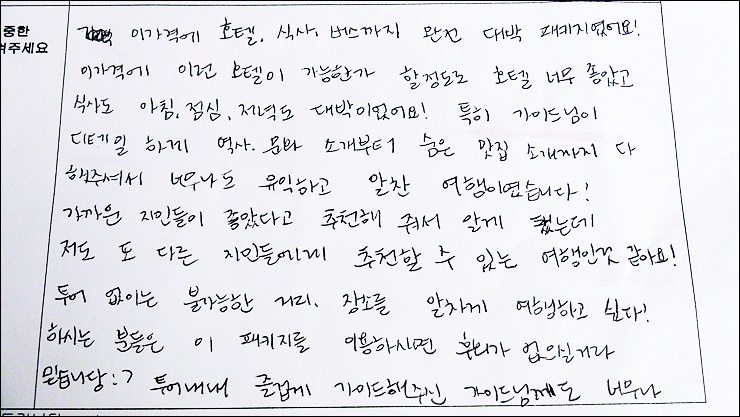 중한
겨주세요
이가격에 호텔, 식사, 버스까지 완전 대박 패키지였어요!
이가격에 이런 호텔이 가능한가 할정도로 호텔 너무 좋았고
식사도 아침, 점심, 저녁도 대박이었어요! 특히 가이드님이
디테일 하게 역사, 문화 소개부터 숨은 맛집 소개까지 다
해주셔서 너무나도 유익하고 알찬 여행이였습니다!
가까운 지인들이 좋았다고 추천해 줘서 알게 됐는데
저도 또 다른 지인들에게 추천할 수 있는 여행인것 같아요!
투어 없이는 불가능한 거리, 장소를 알차게 여행하고 싶다!
하시는 분들은 이 패키지를 이용하시면 후회가 없으실거라
믿습니당:) 투어내내 즐겁게 가이드해주신 가이드님께도 너무나